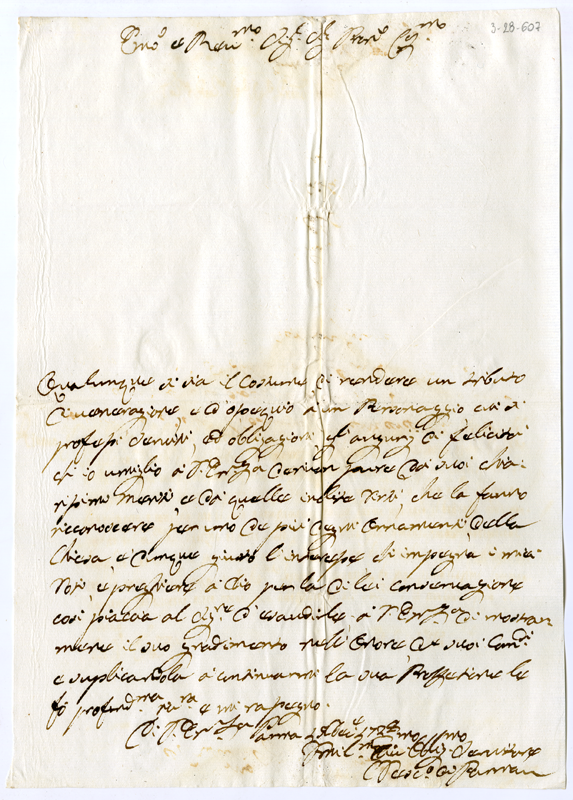 3-28-607
Em.o e Reu.mo Sig.r Sig.r Pron.o Col.mo
Qualunque si sia il costume di rendere un tributo
di uenerazione, ed ossequio à un Personaggio cui si
professi seruitù, ed obligazioni gl'augurij di felicità
ch'io umiglio à V. Em.za deriuan pure da' suoi chia-
rissimi meriti e da quelle inclite Virtù, che la fanno
riconoscere per uno de più degni ornamenti della
Chiesa, e dunque giusto l'interesse ch'impegna i miei
Voti, e preghiere à Dio per la di lei conseruazione
così piaccia al Sig.re d'esaudirle à V. Em.za di
mere il suo gradimento nell'onore de suoi Com.di
e suplicandola à continuarmi la sua Protettione le
fò profond.ma riu.a e mi rassegno.
Di V. Em.za Parma
Vmil.mo Seruitore
di Parma